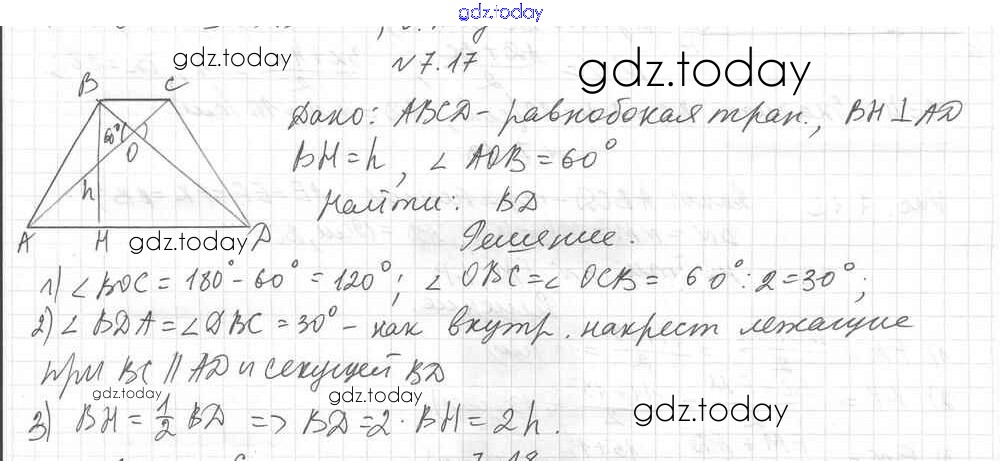 gdz.today
№ 7.17
gdz.today
gdz.today
B C
Дано: ABCD - равнобокая трап., BH ⊥ AD
60°
O
BH = h, ∠ AOB = 60°
h
Найти: BD
A H D
gdz.today
Решение.
1) ∠ BOC = 180° - 60° = 120°; ∠ OBC = ∠ OCB = 60° : 2 = 30°;
2) ∠ BDA = ∠ DBC = 30° - как внутр. накрест лежащие
при BC || AD и секущей BD
gdz.today
gdz.today
gdz.today
3) BH = 1/2 BD => BD = 2 · BH = 2h.